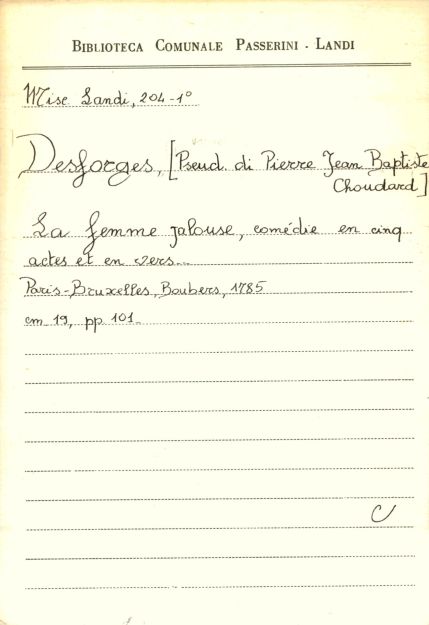 BIBLIOTECA COMUNALE PASSERINI - LANDI
Misc Landi, 204-1º
Desforges, [Pseud. di Pierre Jean Baptiste
Choudard]
La femme jalouse, comédie en cinq
actes et en vers...
Paris-Bruxelles, Boubers, 1785
cm 19, pp 101.